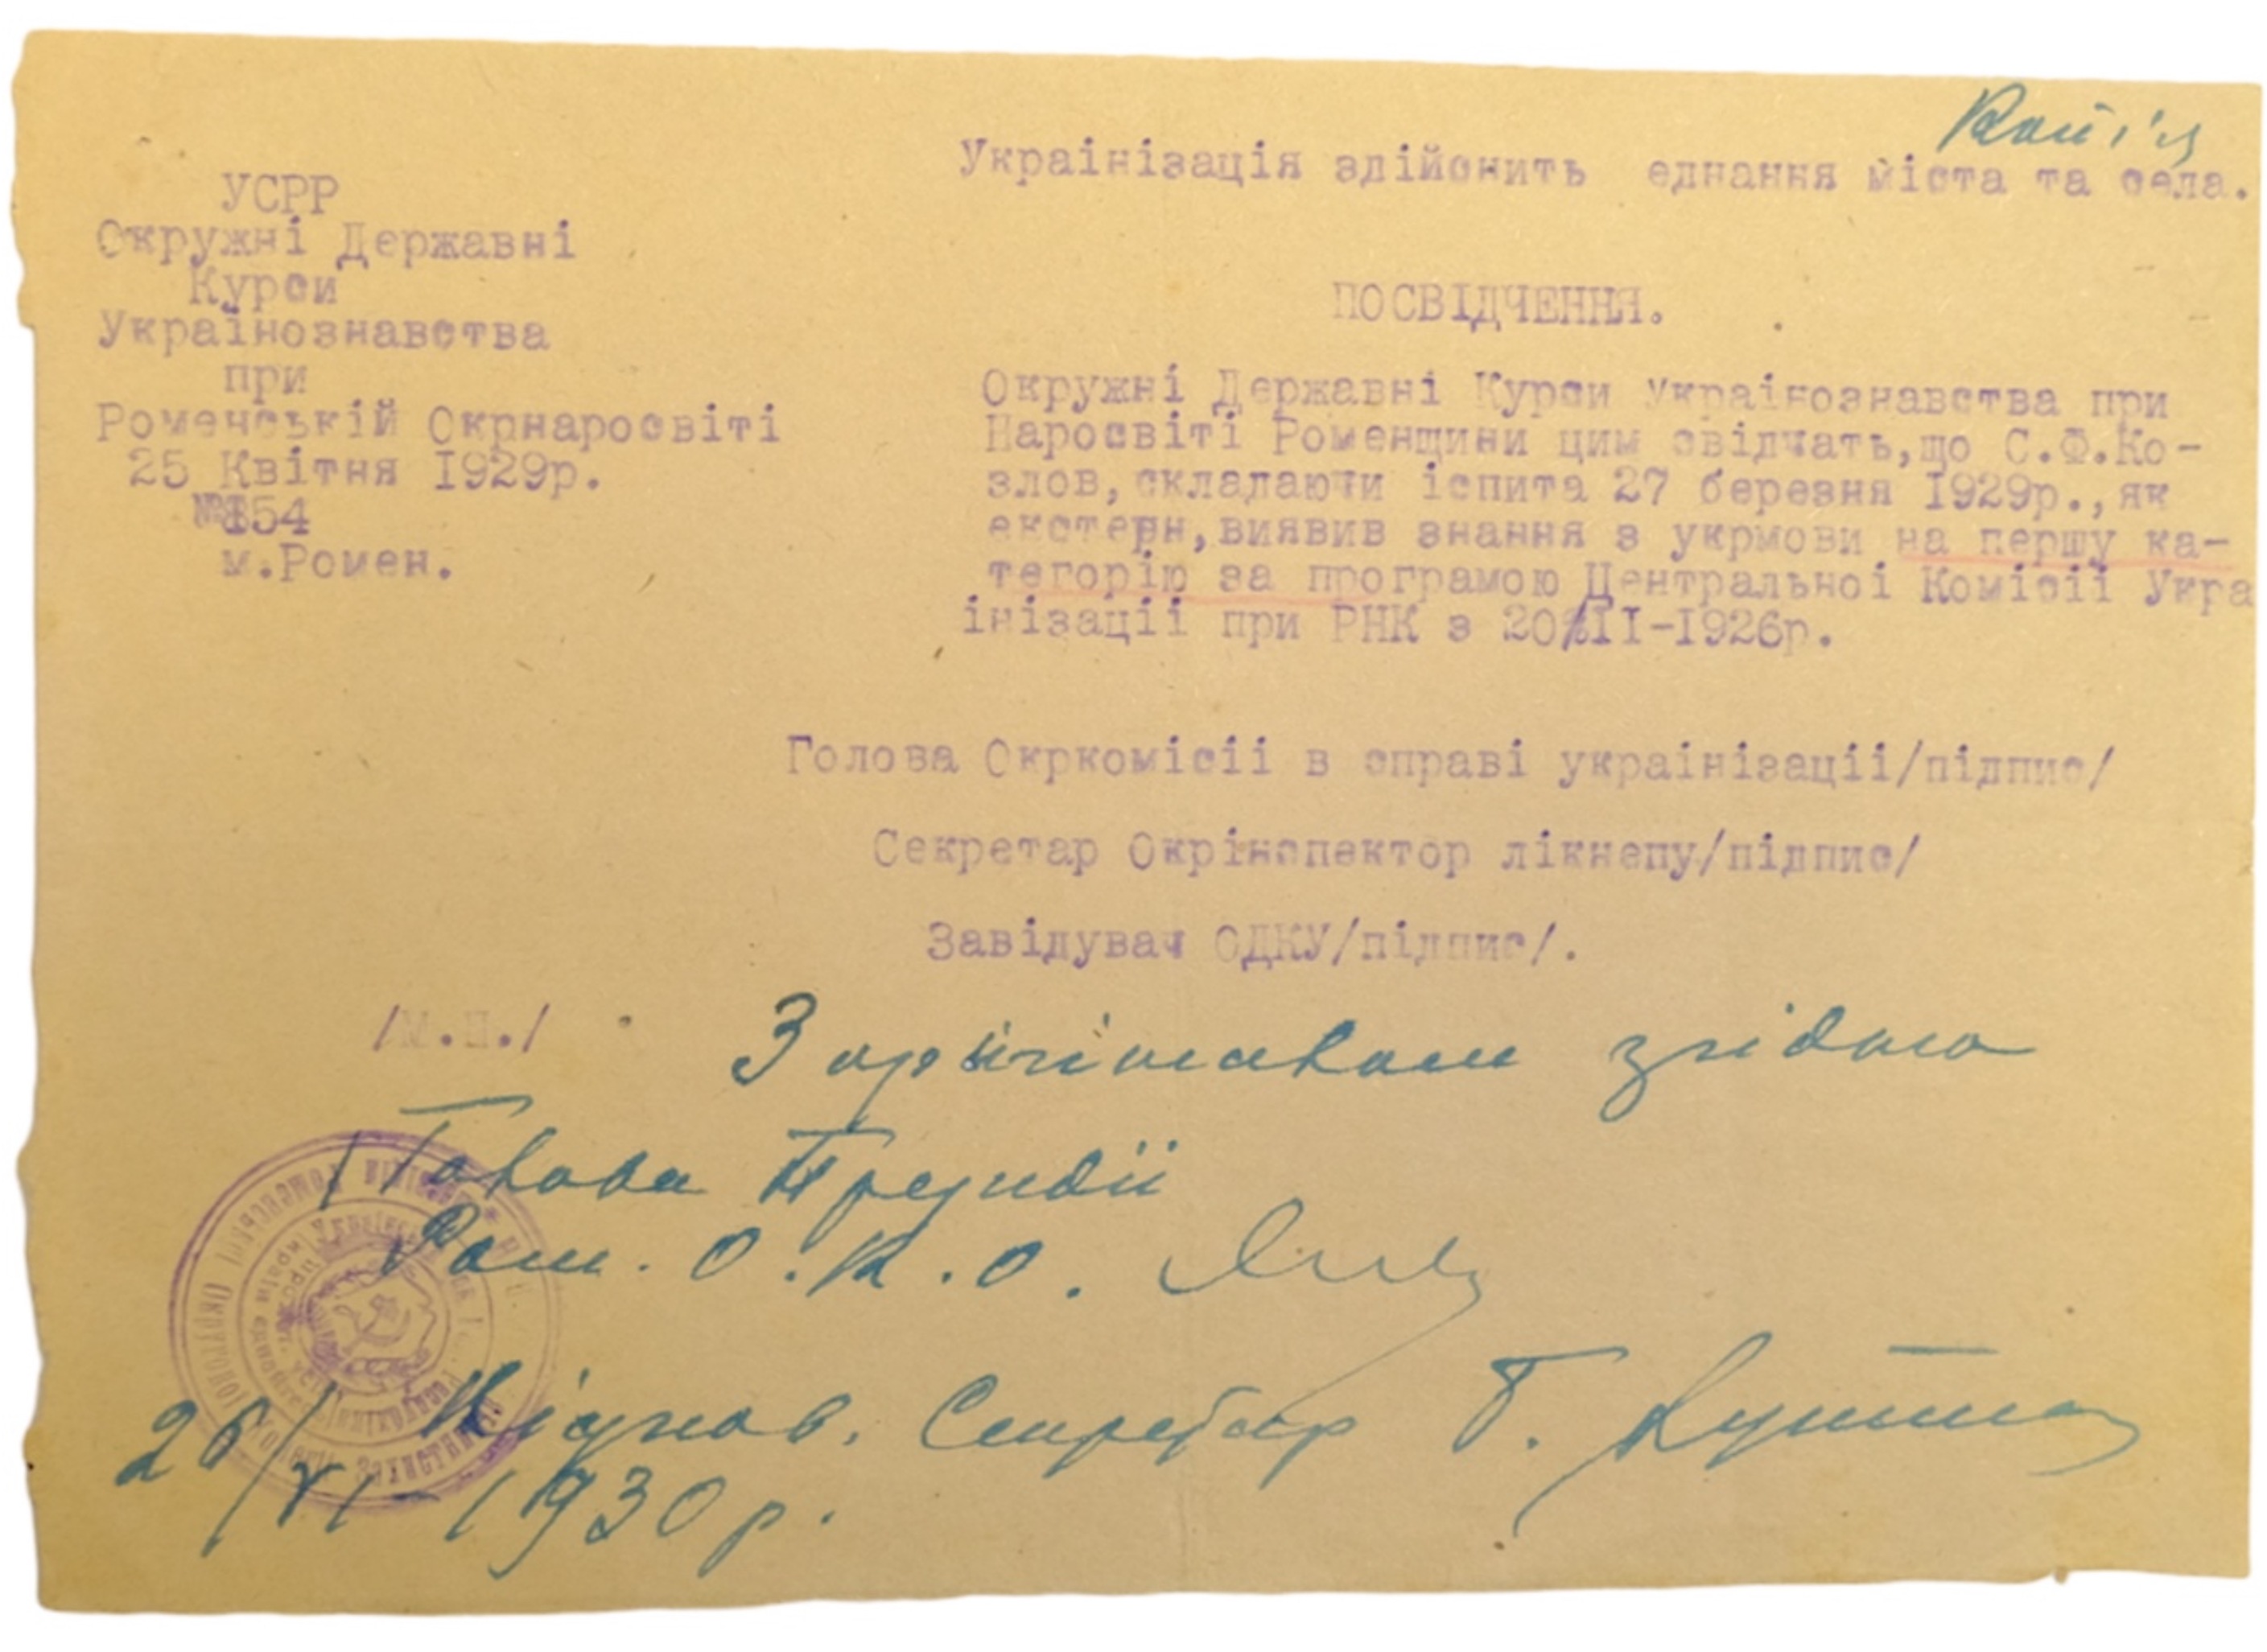 Копія
Украінізація здійснить єднання міста та села.
УСРР
Окружні Державні
Курси
Українознавства
при
Роменській Окрнаросвіті
25 Квітня 1929р.
№154
м.Ромен.
ПОСВІДЧЕННЯ.
Окружні Державні Курси Украінознавства при
Наросвіті Роменщини цим свідчать,що С.Ф.Ко-
злов,складаючи іспита 27 березня 1929р.,як
екстерн,виявив знання з укрмови на першу ка-
тегорію за програмою Центральноі Комісіі Укра
інізаціі при РНК з 20/II-1926р.
Голова Окркомісіі в справі украінізаціі/підпис/
Секретар Окрінспектор лікнепу/підпис/
Завідувач ОДКУ/підпис/.
/М.П./
З оригіналом згідно
Голова Президії
Ром. О.К.О.
Секретар
26/VI-1930р.